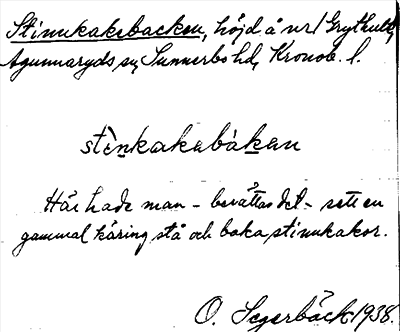 Stinnkakebacken, höjd å nr 1 Grythult,
Agunnaryds sn, Sunnerbo hd, Kronob. l.
stènkakabàkan
Här hade man – berättas det – sett en
gammal käring stå och baka stinnkakor.
O. Segerbäck 1938.